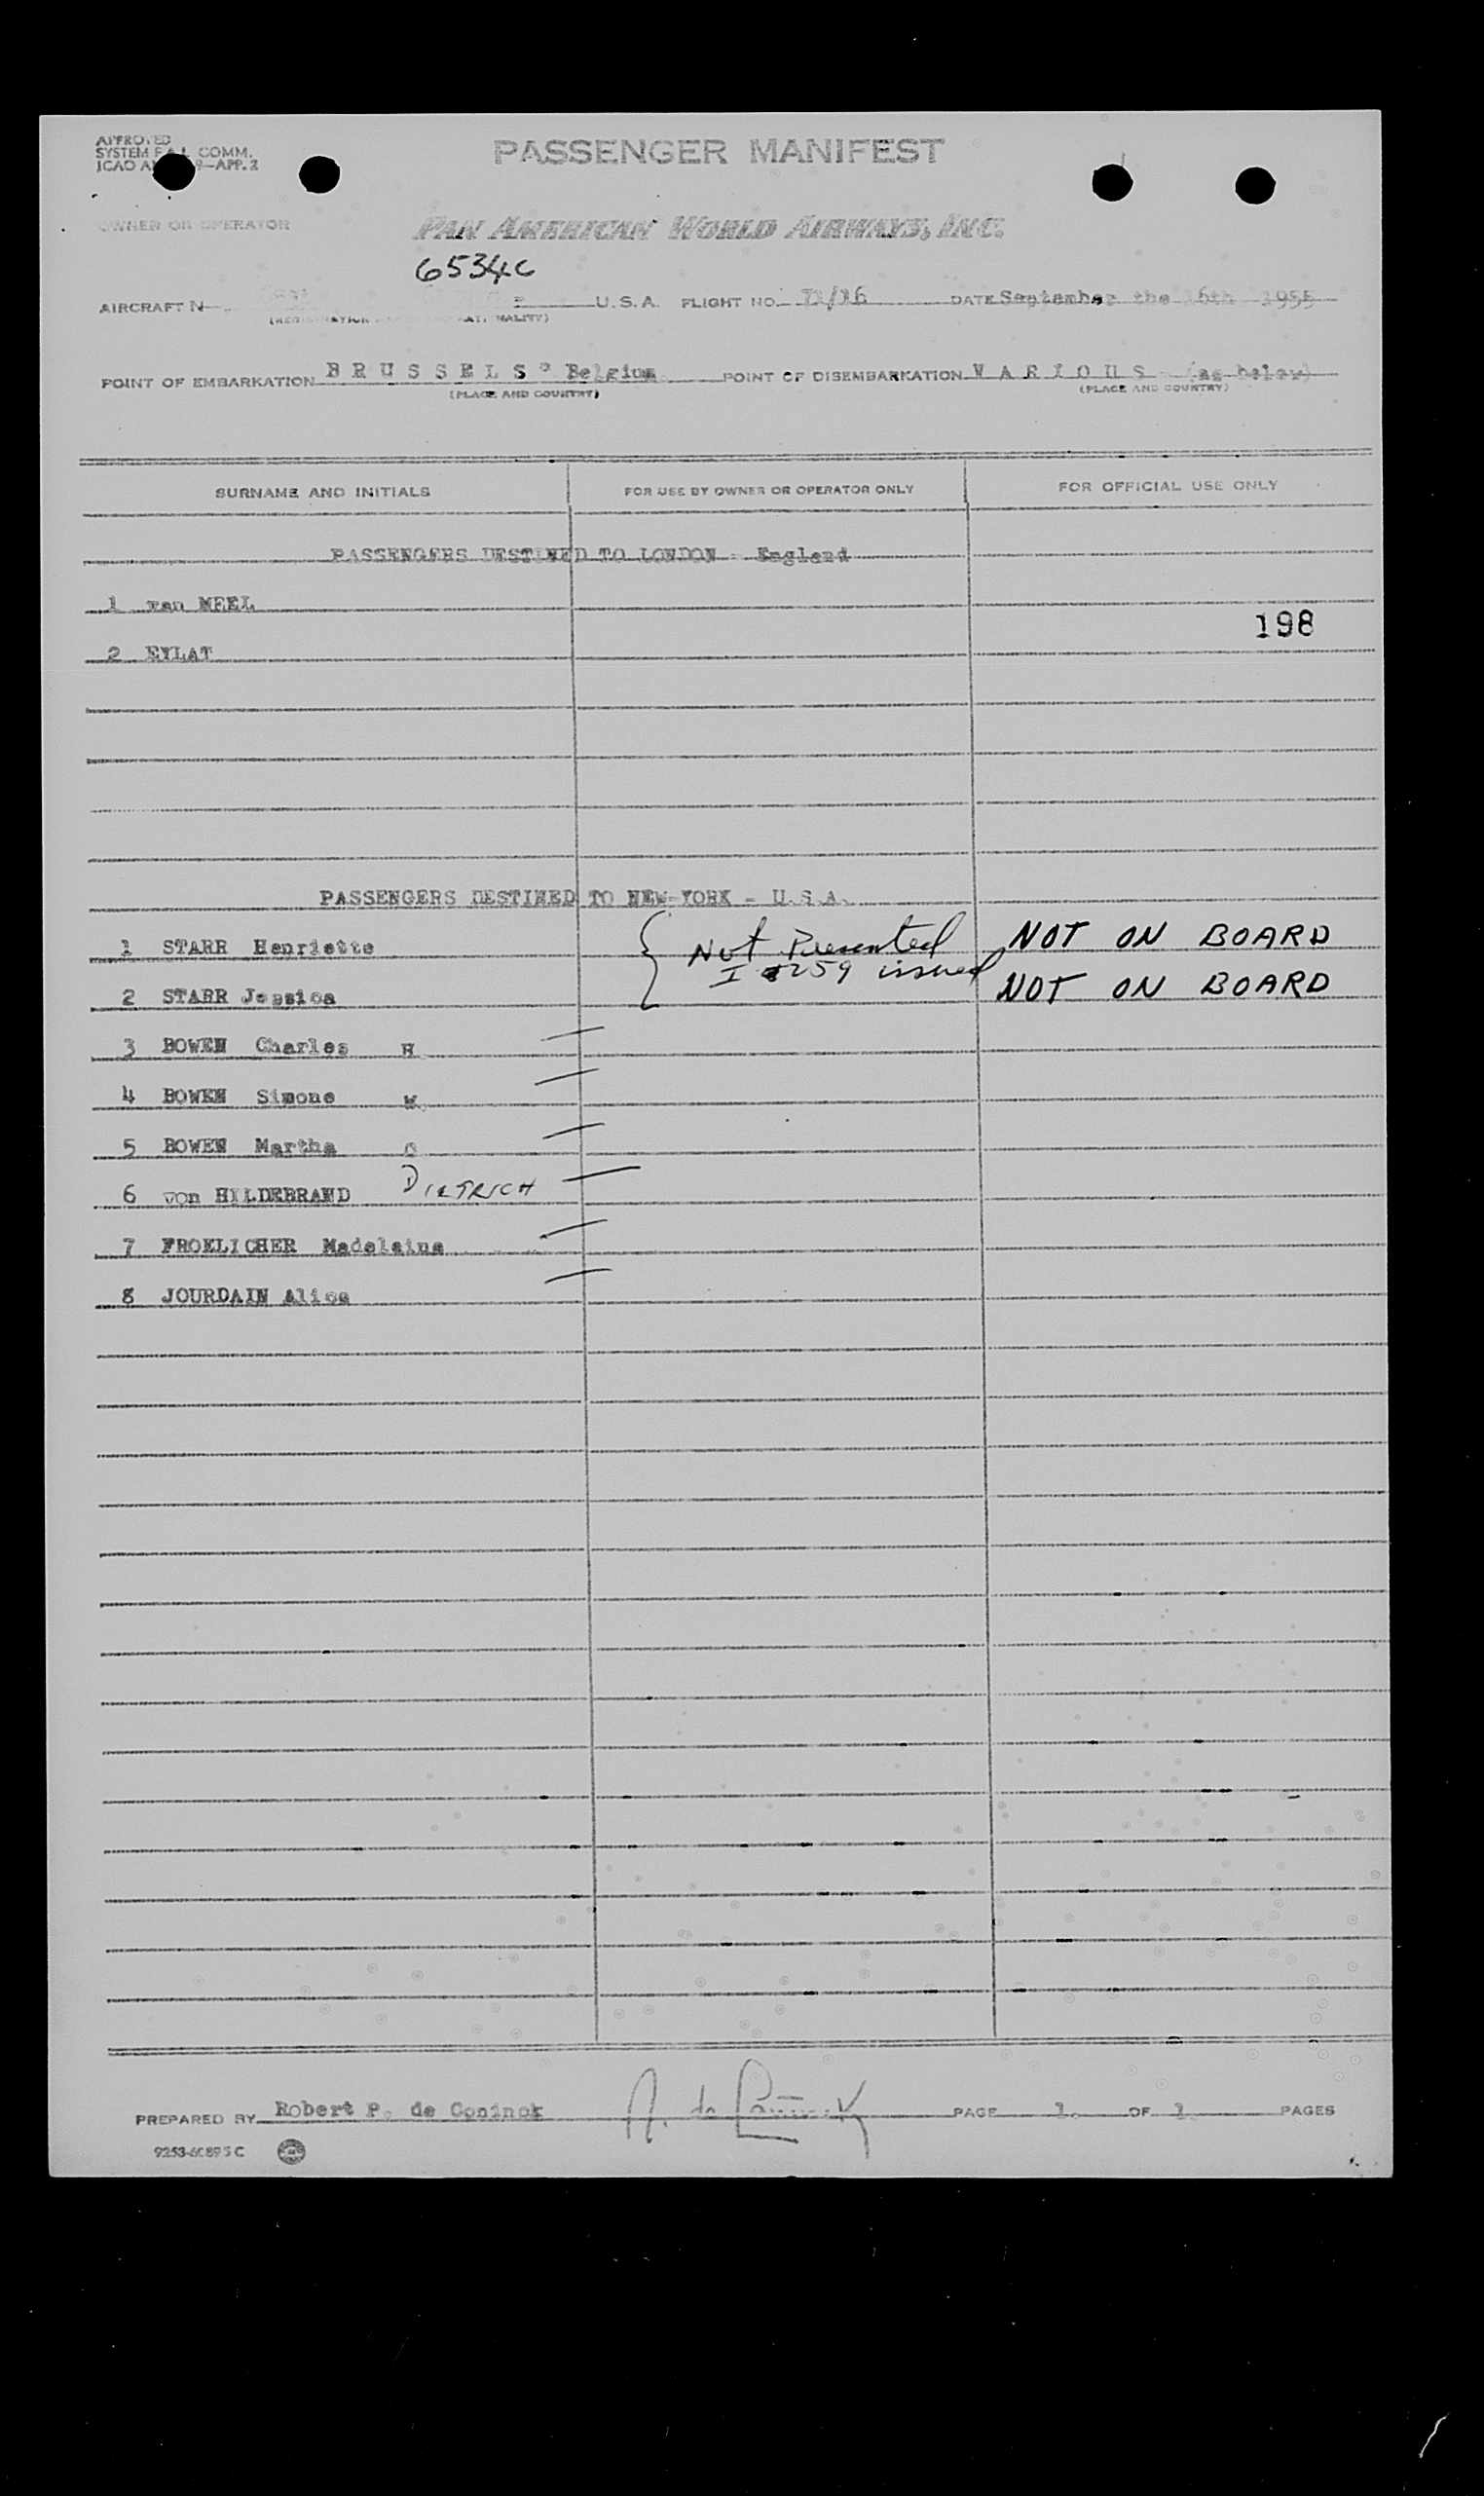 APPROVED
SYSTEM F.A.L. COMM.
ICAO 9—APP. 2
PASSENGER MANIFEST
OWNER OR OPERATOR
PAN AMERICAN WORLD AIRWAYS, INC.
6534C
AIRCRAFT N U.S.A. FLIGHT NO. DATE September the 16th 1955
POINT OF EMBARKATION B R U S S E L S Belgium POINT OF DISEMBARKATION V A R I O U S (as below)
(PLACE AND COUNTRY) (PLACE AND COUNTRY)
SURNAME AND INITIALS FOR USE BY OWNER OR OPERATOR ONLY FOR OFFICIAL USE ONLY
PASSENGERS DESTINED TO LONDON - England
1 van MEEL
198
2 EYLAT
PASSENGERS DESTINED TO NEW-YORK - U.S.A.
1 STARR Henriette Not Presented NOT ON BOARD
I 259 issued
2 STARR Jessica NOT ON BOARD
3 BOWEN Charles H
4 BOWEN Simone W
5 BOWEN Martha C
6 von HILDEBRAND DIETRICH
7 FROELICHER Madeleine
8 JOURDAIN Alice
PREPARED BY Robert P. de Coninck R. de Coninck PAGE 1. OF 1 PAGES